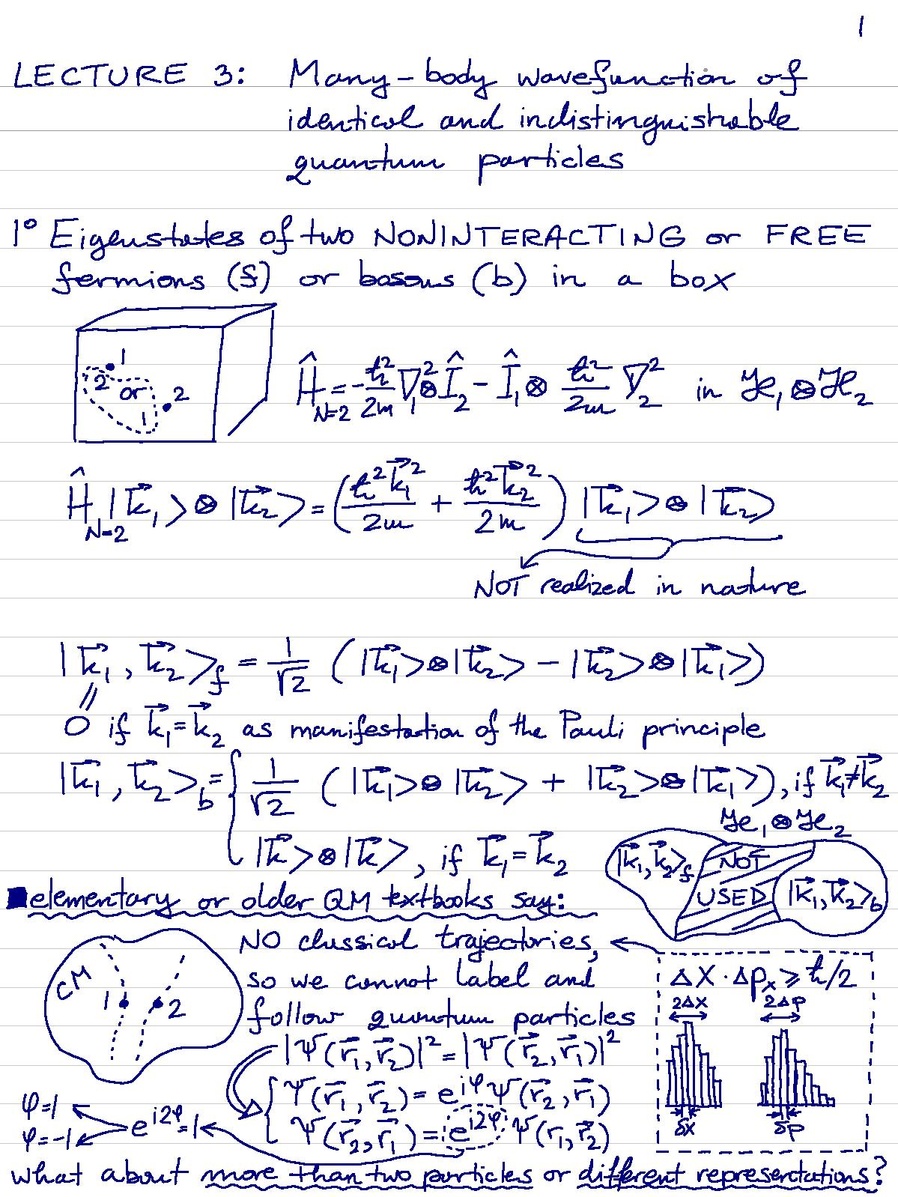 1
LECTURE 3: Many-body wavefunction of
identical and indistinguishable
quantum particles
1° Eigenstates of two NONINTERACTING or FREE
fermions (f) or bosons (b) in a box
1
2 or 2
1
Ĥ_{N=2} = -ħ²/2m ∇₁² ⊗ Î₂ - Î₁ ⊗ ħ²/2m ∇₂² in ℋ₁ ⊗ ℋ₂
Ĥ_{N=2} |k⃗₁> ⊗ |k⃗₂> = (ħ²k⃗₁²/2m + ħ²k⃗₂²/2m) |k⃗₁> ⊗ |k⃗₂>
NOT realized in nature
|k⃗₁, k⃗₂>_f = 1/√2 (|k⃗₁> ⊗ |k⃗₂> - |k⃗₂> ⊗ |k⃗₁>)
||
0 if k⃗₁ = k⃗₂ as manifestation of the Pauli principle
|k⃗₁, k⃗₂>_b = { 1/√2 (|k⃗₁> ⊗ |k⃗₂> + |k⃗₂> ⊗ |k⃗₁>), if k⃗₁ ≠ k⃗₂
|k⃗> ⊗ |k⃗>, if k⃗₁ = k⃗₂
ℋ₁ ⊗ ℋ₂
|k⃗₁, k⃗₂>_f NOT USED |k⃗₁, k⃗₂>_b
elementary or older QM textbooks say:
CM
1 2
NO classical trajectories,
so we cannot label and
follow quantum particles
Δx · Δp_x ⩾ ħ/2
2Δx 2Δp
δx δp
|Ψ(r⃗₁, r⃗₂)|² = |Ψ(r⃗₂, r⃗₁)|²
Ψ(r⃗₁, r⃗₂) = e^{iφ} Ψ(r⃗₂, r⃗₁)
Ψ(r⃗₂, r⃗₁) = e^{i2φ} Ψ(r₁, r⃗₂)
φ=1
φ=-1
e^{i2φ}=1
what about more than two particles or different representations?